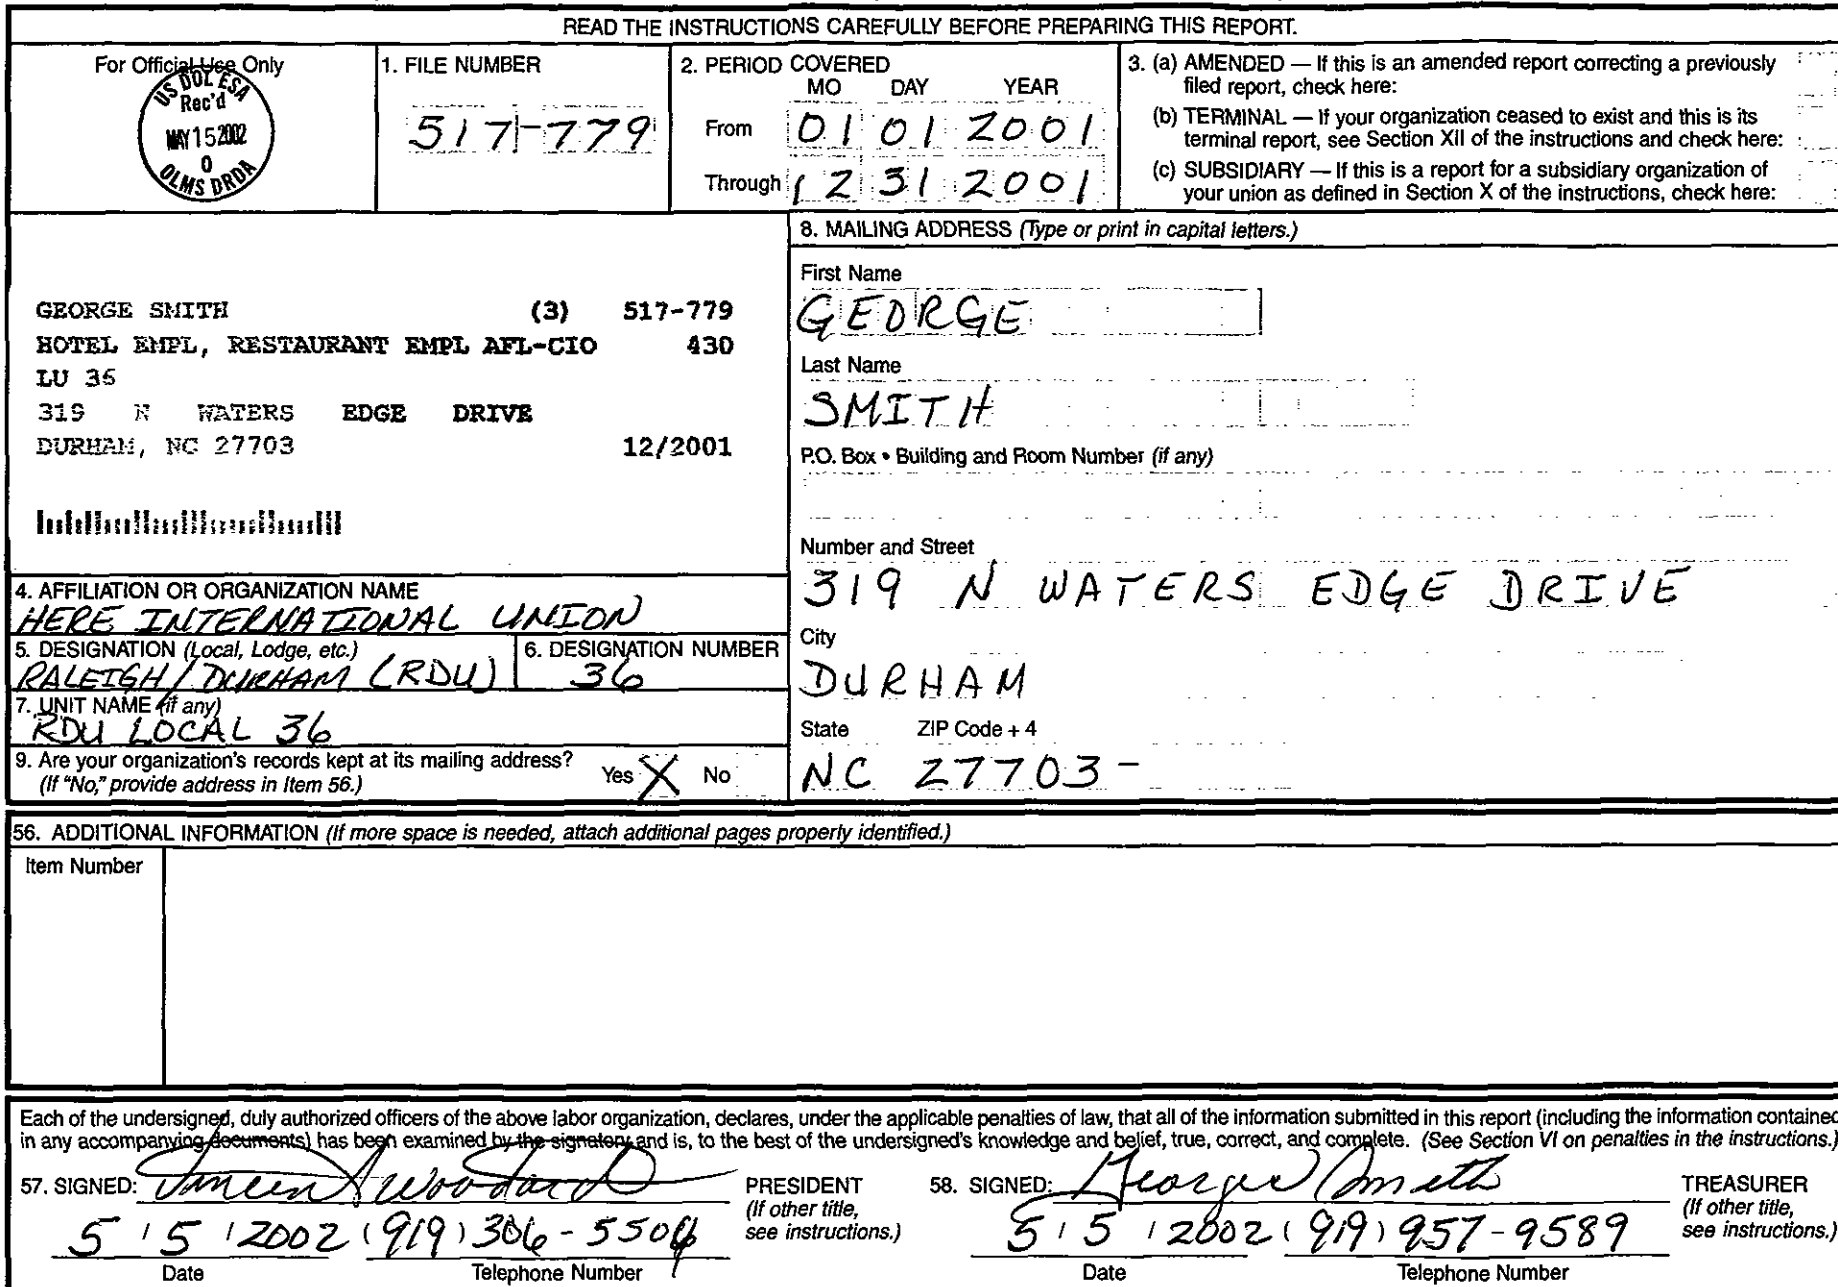 READ THE INSTRUCTIONS CAREFULLY BEFORE PREPARING THIS REPORT.
For Official Use Only
US DOL ESA
Rec'd
MAY 15 2002
0
OLMS DRDA
1. FILE NUMBER
517-779
2. PERIOD COVERED
MO DAY YEAR
From 01 01 2001
Through 12 31 2001
3. (a) AMENDED — If this is an amended report correcting a previously
filed report, check here:
(b) TERMINAL — If your organization ceased to exist and this is its
terminal report, see Section XII of the instructions and check here:
(c) SUBSIDIARY — If this is a report for a subsidiary organization of
your union as defined in Section X of the instructions, check here:
GEORGE SMITH (3) 517-779
HOTEL EMPL, RESTAURANT EMPL AFL-CIO 430
LU 36
319 N WATERS EDGE DRIVE
DURHAM, NC 27703 12/2001
4. AFFILIATION OR ORGANIZATION NAME
HERE INTERNATIONAL UNION
5. DESIGNATION (Local, Lodge, etc.)
RALEIGH/DURHAM (RDU)
6. DESIGNATION NUMBER
36
7. UNIT NAME (if any)
RDU LOCAL 36
9. Are your organization's records kept at its mailing address?
(If "No," provide address in Item 56.)
Yes X No
8. MAILING ADDRESS (Type or print in capital letters.)
First Name
GEORGE
Last Name
SMITH
P.O. Box • Building and Room Number (if any)
Number and Street
319 N WATERS EDGE DRIVE
City
DURHAM
State ZIP Code + 4
NC 27703-
56. ADDITIONAL INFORMATION (If more space is needed, attach additional pages properly identified.)
Item Number
Each of the undersigned, duly authorized officers of the above labor organization, declares, under the applicable penalties of law, that all of the information submitted in this report (including the information contained
in any accompanying documents) has been examined by the signatory and is, to the best of the undersigned's knowledge and belief, true, correct, and complete. (See Section VI on penalties in the instructions.)
57. SIGNED: Woodard
PRESIDENT
(If other title,
see instructions.)
5 / 5 / 2002 (919) 306-5504
Date Telephone Number
58. SIGNED: George Smith
TREASURER
(If other title,
see instructions.)
5 / 5 / 2002 (919) 957-9589
Date Telephone Number